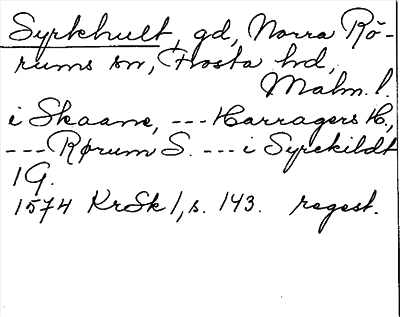 Syrkhult, gd, Norra Rö-
rums sn, Frosta hd,
Malm. l.
i Skaane, --- Harragers H.,
--- Rørum S. --- i Syrekildt
1 G.
1574 KrSk 1, s. 143. regest.